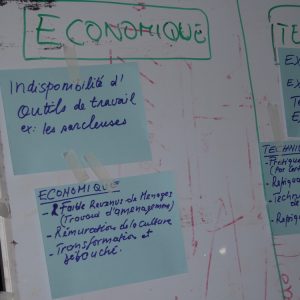 ECONOMIQUE
Indisponibilité d'
Outils de travail
ex: les sarcleuses
ECONOMIQUE
- Faible Revenus de Menages
(Travaux d'aménagement)
- Rémunration de la Culture
- Transformation et
débouché.
TE
EX
EX
TECHNI
- Pratique
- Repiqua
- Techni
- Repiq